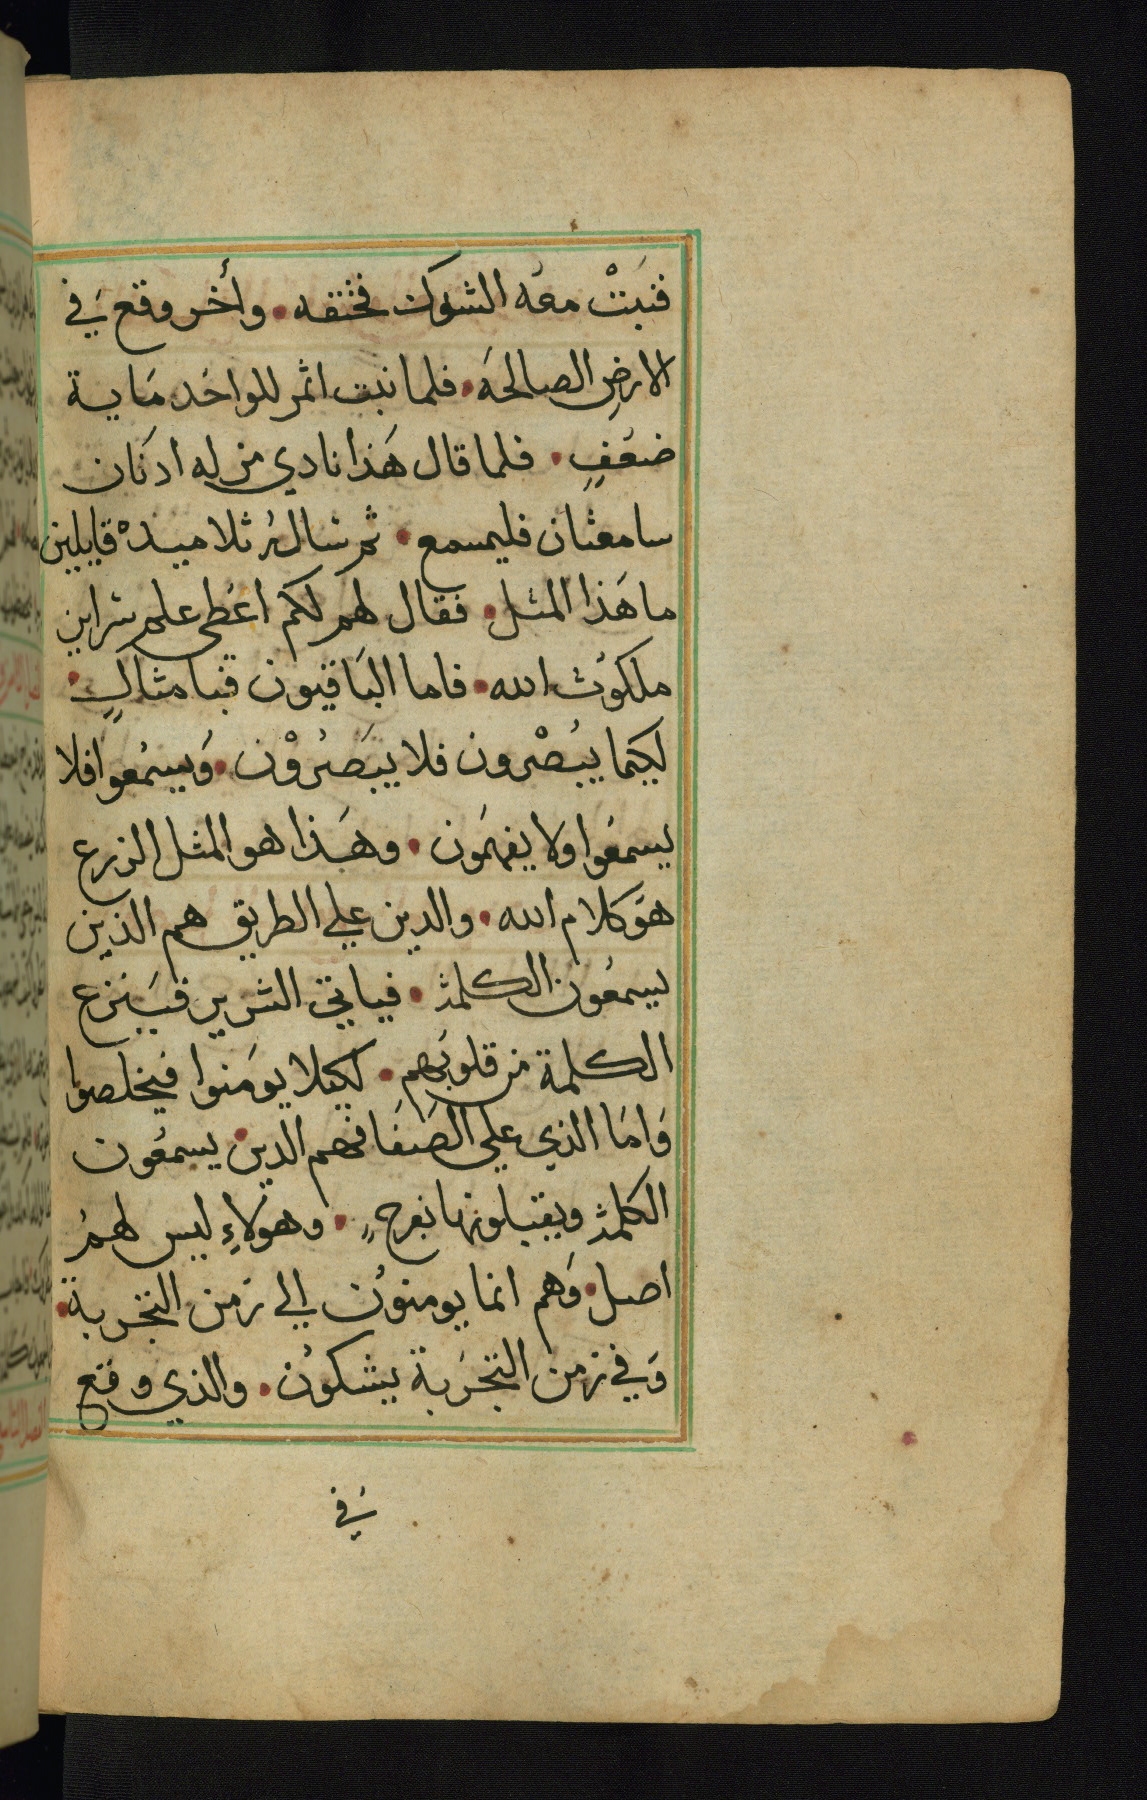 فنبتْ معه الشوك فخنقه • وأخر وقع في
الارضِ الصالحَه • فلما نبت اثمر للواحَد مَاية
ضعَفٍ • فلما قال هَذا نادي من له ادنَان
سامعتان فليسمع • ثم سالهُ تلاميدهْ قايلين
ما هَذا المثل • فقال لهم لكم اعَطى علم سراير
ملكوُت الله • فاما البَاقيون فبامثالٍ •
لكيما يبُصْرون فلا يبَصرُوْن • وُيسمُعوا فلا
يسمعَوا ولا يفهمَون • وهَذا هو المثل الزرع
هوَ كلام الله • والدين علي الطريق هم الذين
يسمعُون الكلمة • فياتي الشرير فيَنزع
الكلمة من قلوبَهم • لكيلا يومَنوا فيَخلصوا
وَامَا الذي علي الصَفَا فهم الدين يسمعُون
الكلمة ويقبلونها بفرحٍ • وهوَلاءِ ليس لهمُ
اصل • وَهم انما يومنوُن الي زمن التجَربة •
وَفي زمن التجَربة يشكوُن • والذي وقع
في